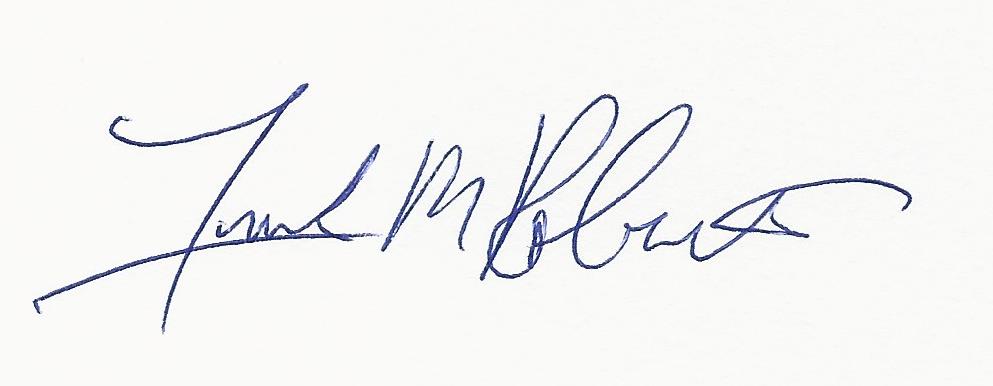 Frank M Roberts